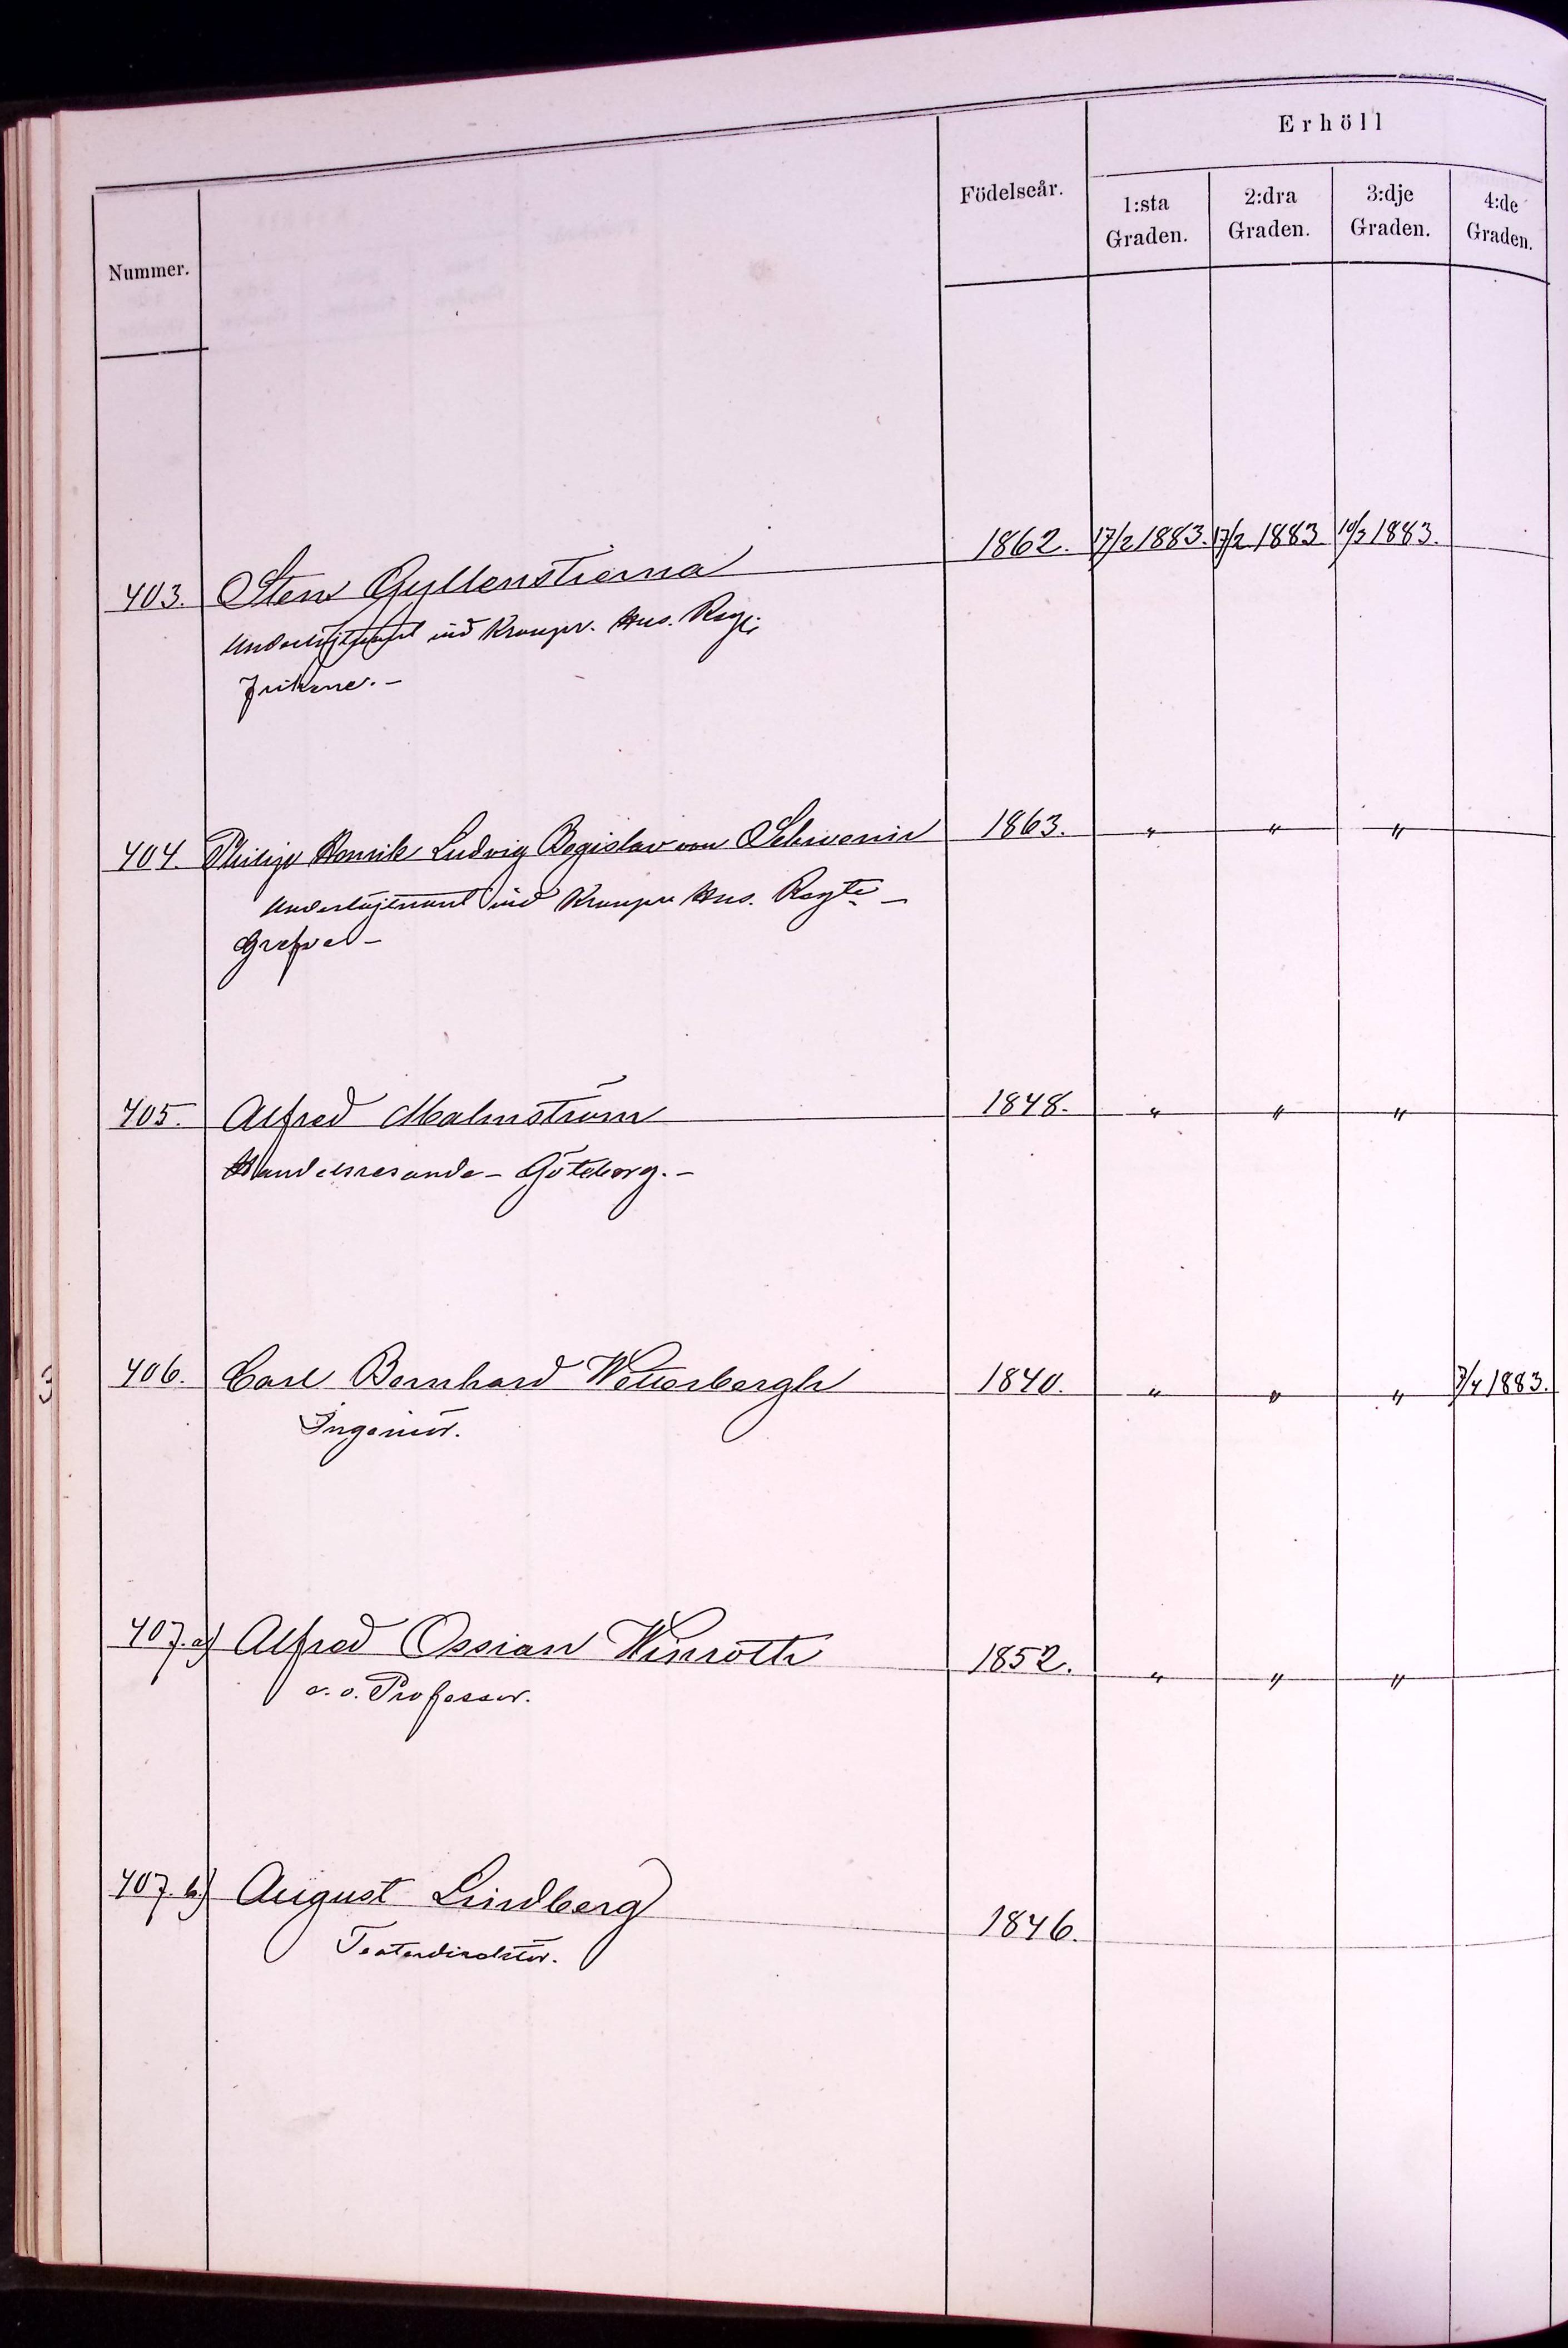 Erhöll
Nummer. Födelseår. 1:sta Graden. 2:dra Graden. 3:dje Graden. 4:de Graden.
403. Sten Gyllenstierna 1862. 17/2 1883. 17/2 1883 10/3 1883.
Underlöjtnant vid Kronpr. Hus. Reg:
Friherre. -
404. Philip Henrik Ludvig Bogislav von Schwerin 1863. " " "
Underlöjtnant vid Kronpr Hus. Regte -
Grefve -
405. Alfred Malmström 1848. " " "
Handelsresande - Göteborg. -
406. Carl Bernhard Wetterbergh 1840. " " " 7/4 1883.
Ingeniör.
407. a) Alfred Ossian Winroth 1852. " " "
e. o. Professor.
407. b) August Lindberg 1846.
Teaterdirektör.